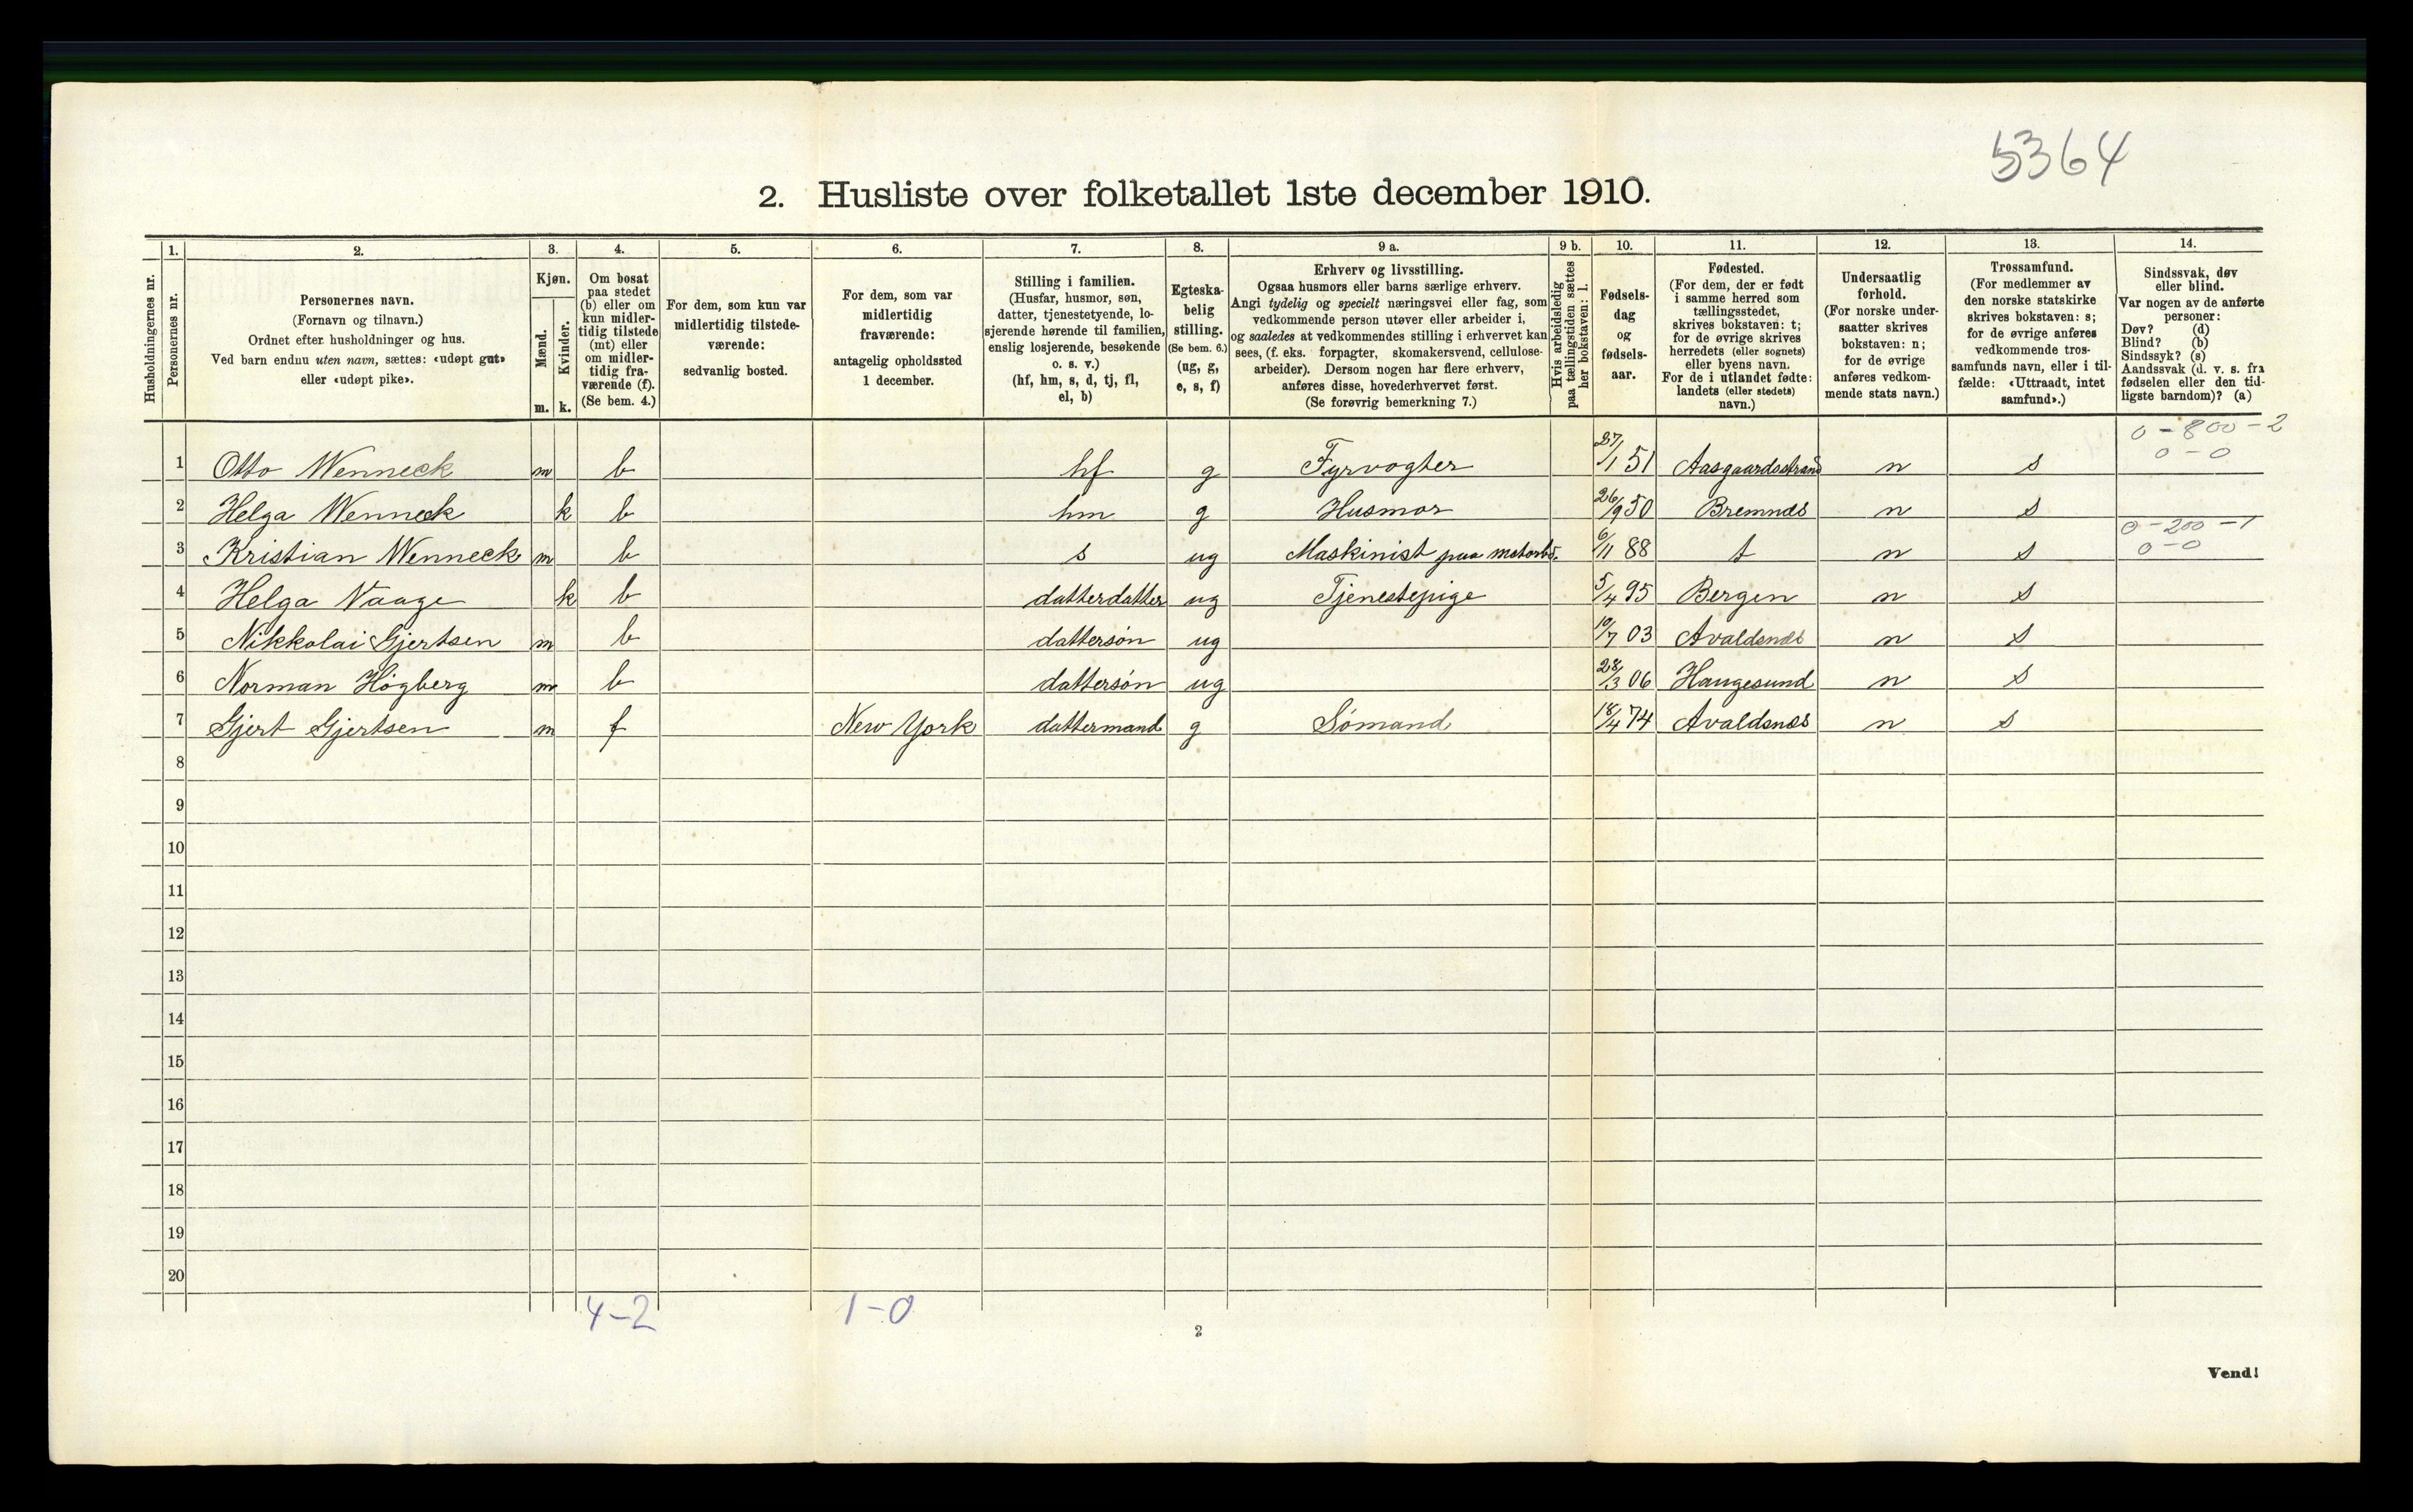 5364
2. Husliste over folketallet 1ste december 1910.
1. 2. 3. 4. 5. 6. 7. 8. 9 a. 9 b. 10. 11. 12. 13. 14.
Husholdningernes nr.
Personernes nr.
Personernes navn.
(Fornavn og tilnavn.)
Ordnet efter husholdninger og hus.
Ved barn endnu uten navn, sættes: «udøpt gut»
eller «udøpt pike».
Kjøn.
Mænd.
Kvinder.
m. k.
Om bosat
paa stedet
(b) eller om
kun midler-
tidig tilstede
(mt) eller
om midler-
tidig fra-
værende (f).
(Se bem. 4.)
For dem, som kun var
midlertidig tilstede-
værende:
sedvanlig bosted.
For dem, som var
midlertidig
fraværende:
antagelig opholdssted
1 december.
Stilling i familien.
(Husfar, husmor, søn,
datter, tjenestetyende, lo-
sjerende hørende til familien,
enslig losjerende, besøkende
o. s. v.)
(hf, hm, s, d, tj, fl,
el, b)
Egteska-
belig
stilling.
(Se bem. 6.)
(ug, g,
e, s, f)
Erhverv og livsstilling.
Ogsaa husmors eller barns særlige erhverv.
Angi tydelig og specielt næringsvei eller fag, som
vedkommende person utøver eller arbeider i,
og saaledes at vedkommendes stilling i erhvervet kan
sees, (f. eks. forpagter, skomakersvend, cellulose-
arbeider). Dersom nogen har flere erhverv,
anføres disse, hovederhvervet først.
(Se forøvrig bemerkning 7.)
Hvis arbeidsledig
paa tællingstiden sættes
her bokstaven: l.
Fødsels-
dag
og
fødsels-
aar.
Fødested.
(For dem, der er født
i samme herred som
tællingsstedet,
skrives bokstaven: t;
for de øvrige skrives
herredets (eller sognets)
eller byens navn.
For de i utlandet fødte:
landets (eller stedets)
navn.)
Undersaatlig
forhold.
(For norske under-
saatter skrives
bokstaven: n;
for de øvrige
anføres vedkom-
mende stats navn.)
Trossamfund.
(For medlemmer av
den norske statskirke
skrives bokstaven: s;
for de øvrige anføres
vedkommende tros-
samfunds navn, eller i til-
fælde: «Uttraadt, intet
samfund».)
Sindssvak, døv
eller blind.
Var nogen av de anførte
personer:
Døv? (d)
Blind? (b)
Sindssyk? (s)
Aandssvak (d. v. s. fra
fødselen eller den tid-
ligste barndom)? (a)
0-800-2
0-0
1 Otto Wenneck m b hf g Fyrvogter 27/1 51 Aasgaardsstrand n s
2 Helga Wenneck k b hm g Husmor 26/9 50 Bremnes n s
0-200-1
0-0
3 Kristian Wenneck m b s ug Maskinist paa motorbå. 6/11 88 t n s
4 Helga Naage k b datterdatter ug Tjenestepige 5/4 95 Bergen n s
5 Nikkolai Gjertsen m b dattersøn ug 10/7 03 Avaldsnes n s
6 Norman Högberg m b dattersøn ug 28/3 06 Haugesund n s
7 Gjert Gjertsen m f New York dattermand g Sømand 18/4 74 Avaldsnes n s
8
9
10
11
12
13
14
15
16
17
18
19
20
4-2 1-0
2
Vend!